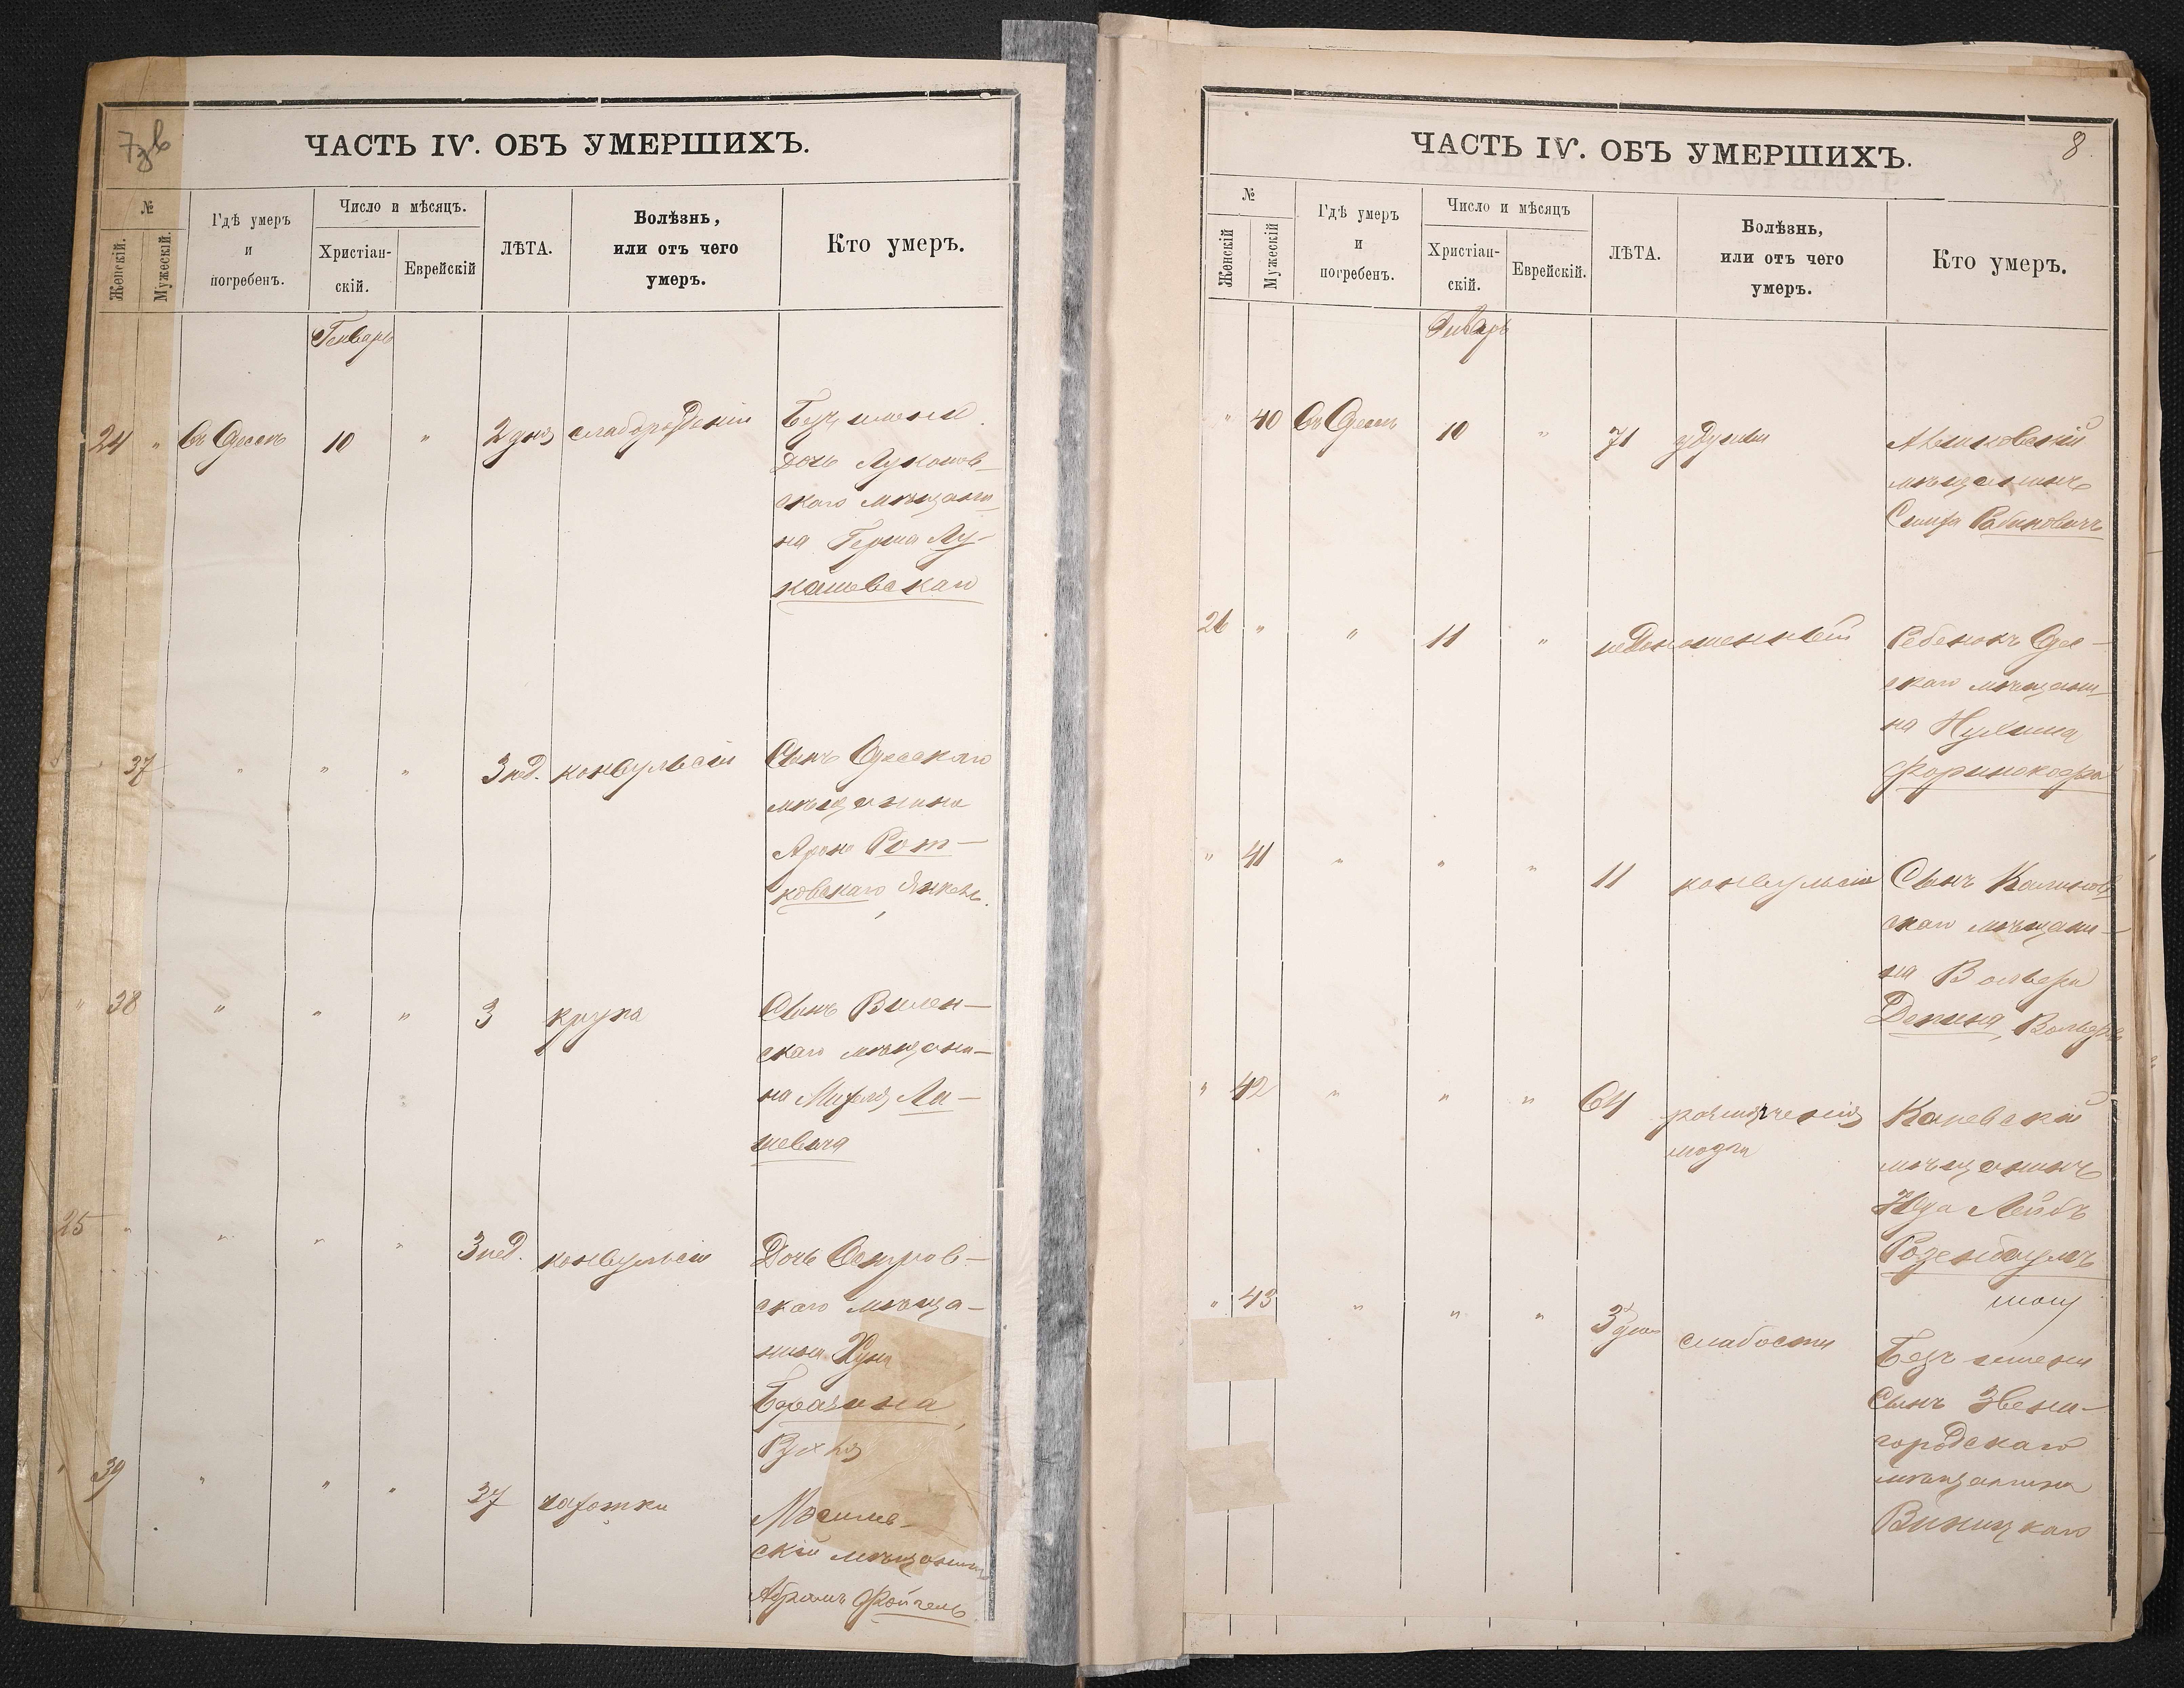 7 зв
ЧАСТЬ IV. ОБЪ УМЕРШИХЪ.
№
Женскій.
Мужескій.
Гдѣ умеръ
и
погребенъ.
Число и мѣсяцъ.
Христіан-
скій.
Еврейскій
ЛѢТА.
Болѣзнь,
или отъ чего
умеръ.
Кто умеръ.
Генварь
24 " въ Одессѣ 10 " 2 дня слаборожденія Безъ имени
дочь
скаго мѣщани-
на Герша Лу-
кашевскаго
" 37 " " " 3 нед. конвульсіи Сынъ Одесскаго
мѣщанина
Арона Рот-
ковскаго Янкель.
" 38 " " " 3 крупа Сынъ Вилен-
скаго мѣщани-
на Ли-
шевича
25 " " " " 3 нед. конвульсіи Дочь Остров-
скаго мѣща-
нина
Рухля
" 39 " " " 37 чахотки
скій мѣщанинъ
Абрамъ Фойгель
8.
ЧАСТЬ IV. ОБЪ УМЕРШИХЪ.
№
Женскій
Мужескій
Гдѣ умеръ
и
погребенъ.
Число и мѣсяцъ
Христіан-
скій.
Еврейскій.
ЛѢТА.
Болѣзнь,
или отъ чего
умеръ.
Кто умеръ.
Январь
" 40 въ Одессѣ 10 " 71 удушья
мѣщанинъ
Рабиновичъ
26 " " 11 " недоношенный Ребенокъ Одес-
скаго мѣщани-
на Нухима
" 41 " " " 11 конвульсіи Сынъ Калинов-
скаго мѣщани-
на Вольфа
" 42 " " " 64 размягченія
мозга
Каневскій
мѣщанинъ
Лейбъ
Розенбаумъ
" 43 " " " 3 дня слабости
Безъ имени
Сынъ Звени-
городскаго
мѣщанина
Виницкаго